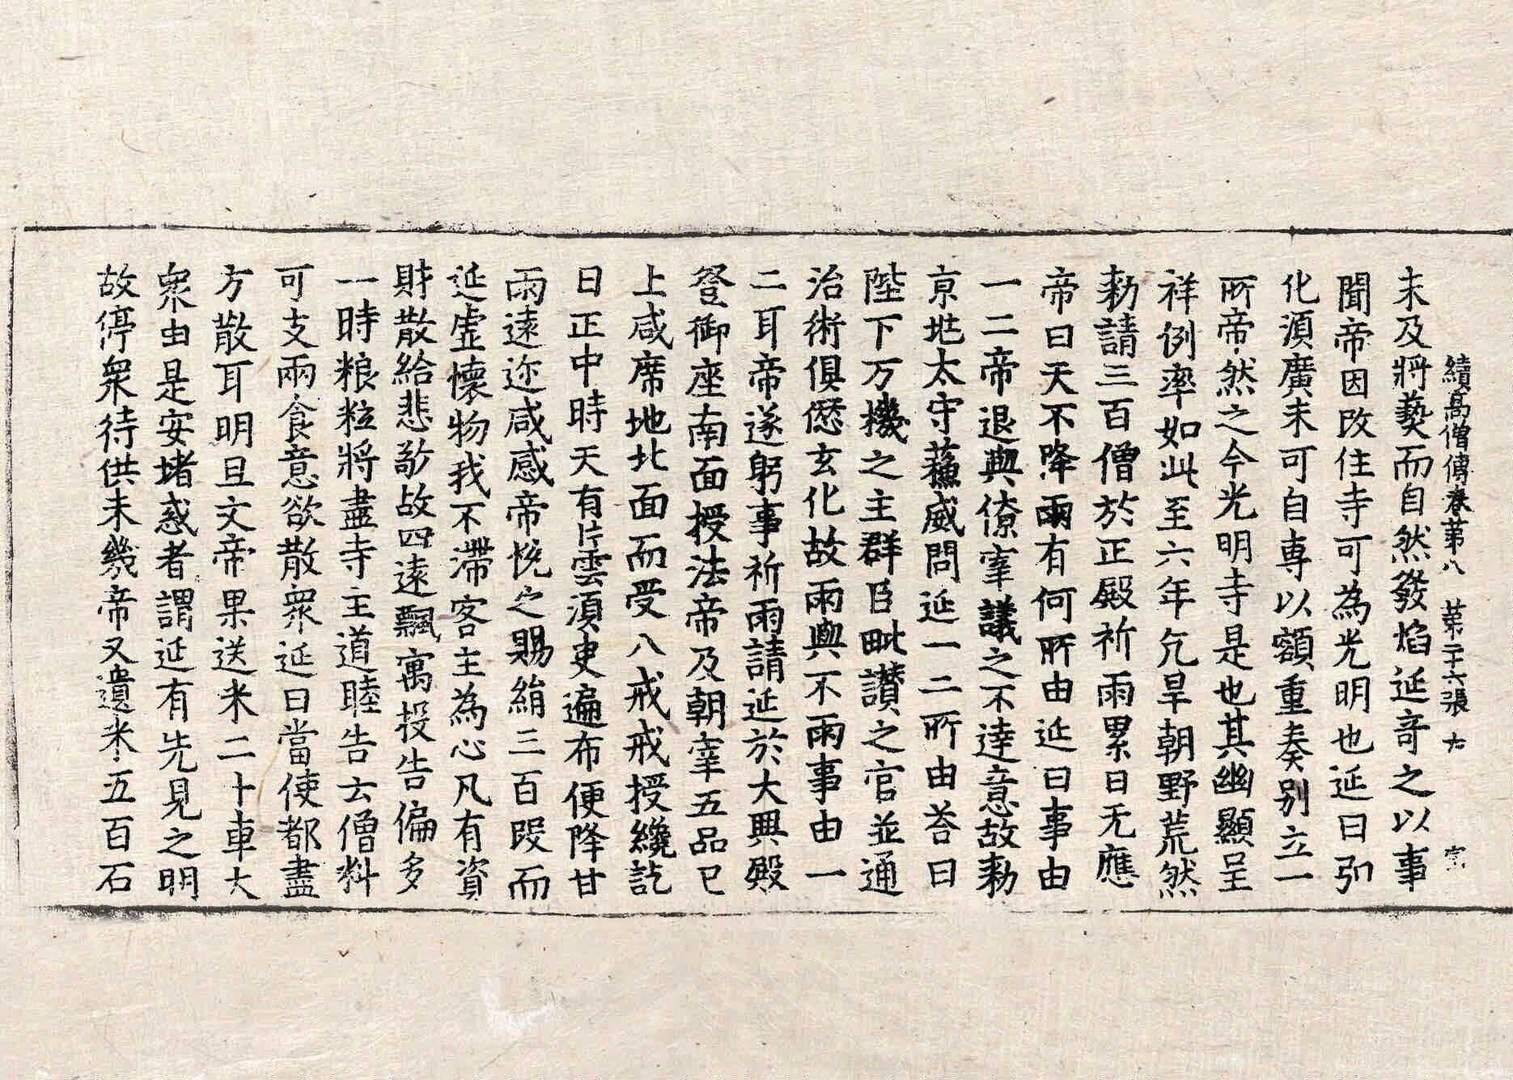 續高僧傳卷第八 第二十六張 㝎
未及將爇而自然發焰延奇之以事
聞帝因改住寺可為光明也延曰弘
化須廣未可自專以額重奏别立一
所帝然之今光明寺是也其幽顯呈
祥例率如此至六年亢旱朝野荒然
勑請三百僧於正殿祈雨累日无應
帝曰天不降雨有何所由延曰事由
一二帝退與僚宰議之不達意故勑
京兆太守蘓威問延一二所由荅曰
陛下万機之主群臣毗讚之官並通
治術俱𠎝玄化故雨與不雨事由一
二耳帝遂躬事祈雨請延於大興殿
登御座南面授法帝及朝宰五品已
上咸席地北面而受八戒戒授纔訖
日正中時天有片雲須臾遍布便降甘
雨遠迩咸感帝悅之賜絹三百段而
延虛懷物我不滯客主為心凡有資
財散給悲敬故四遠飄寓投告偏多
一時粮粒將盡寺主道睦告云僧料
可支兩食意欲散衆延曰當使都盡
方散耳明旦文帝果送米二十車大
衆由是安堵惑者謂延有先見之明
故停衆待供未幾帝又遺米五百石